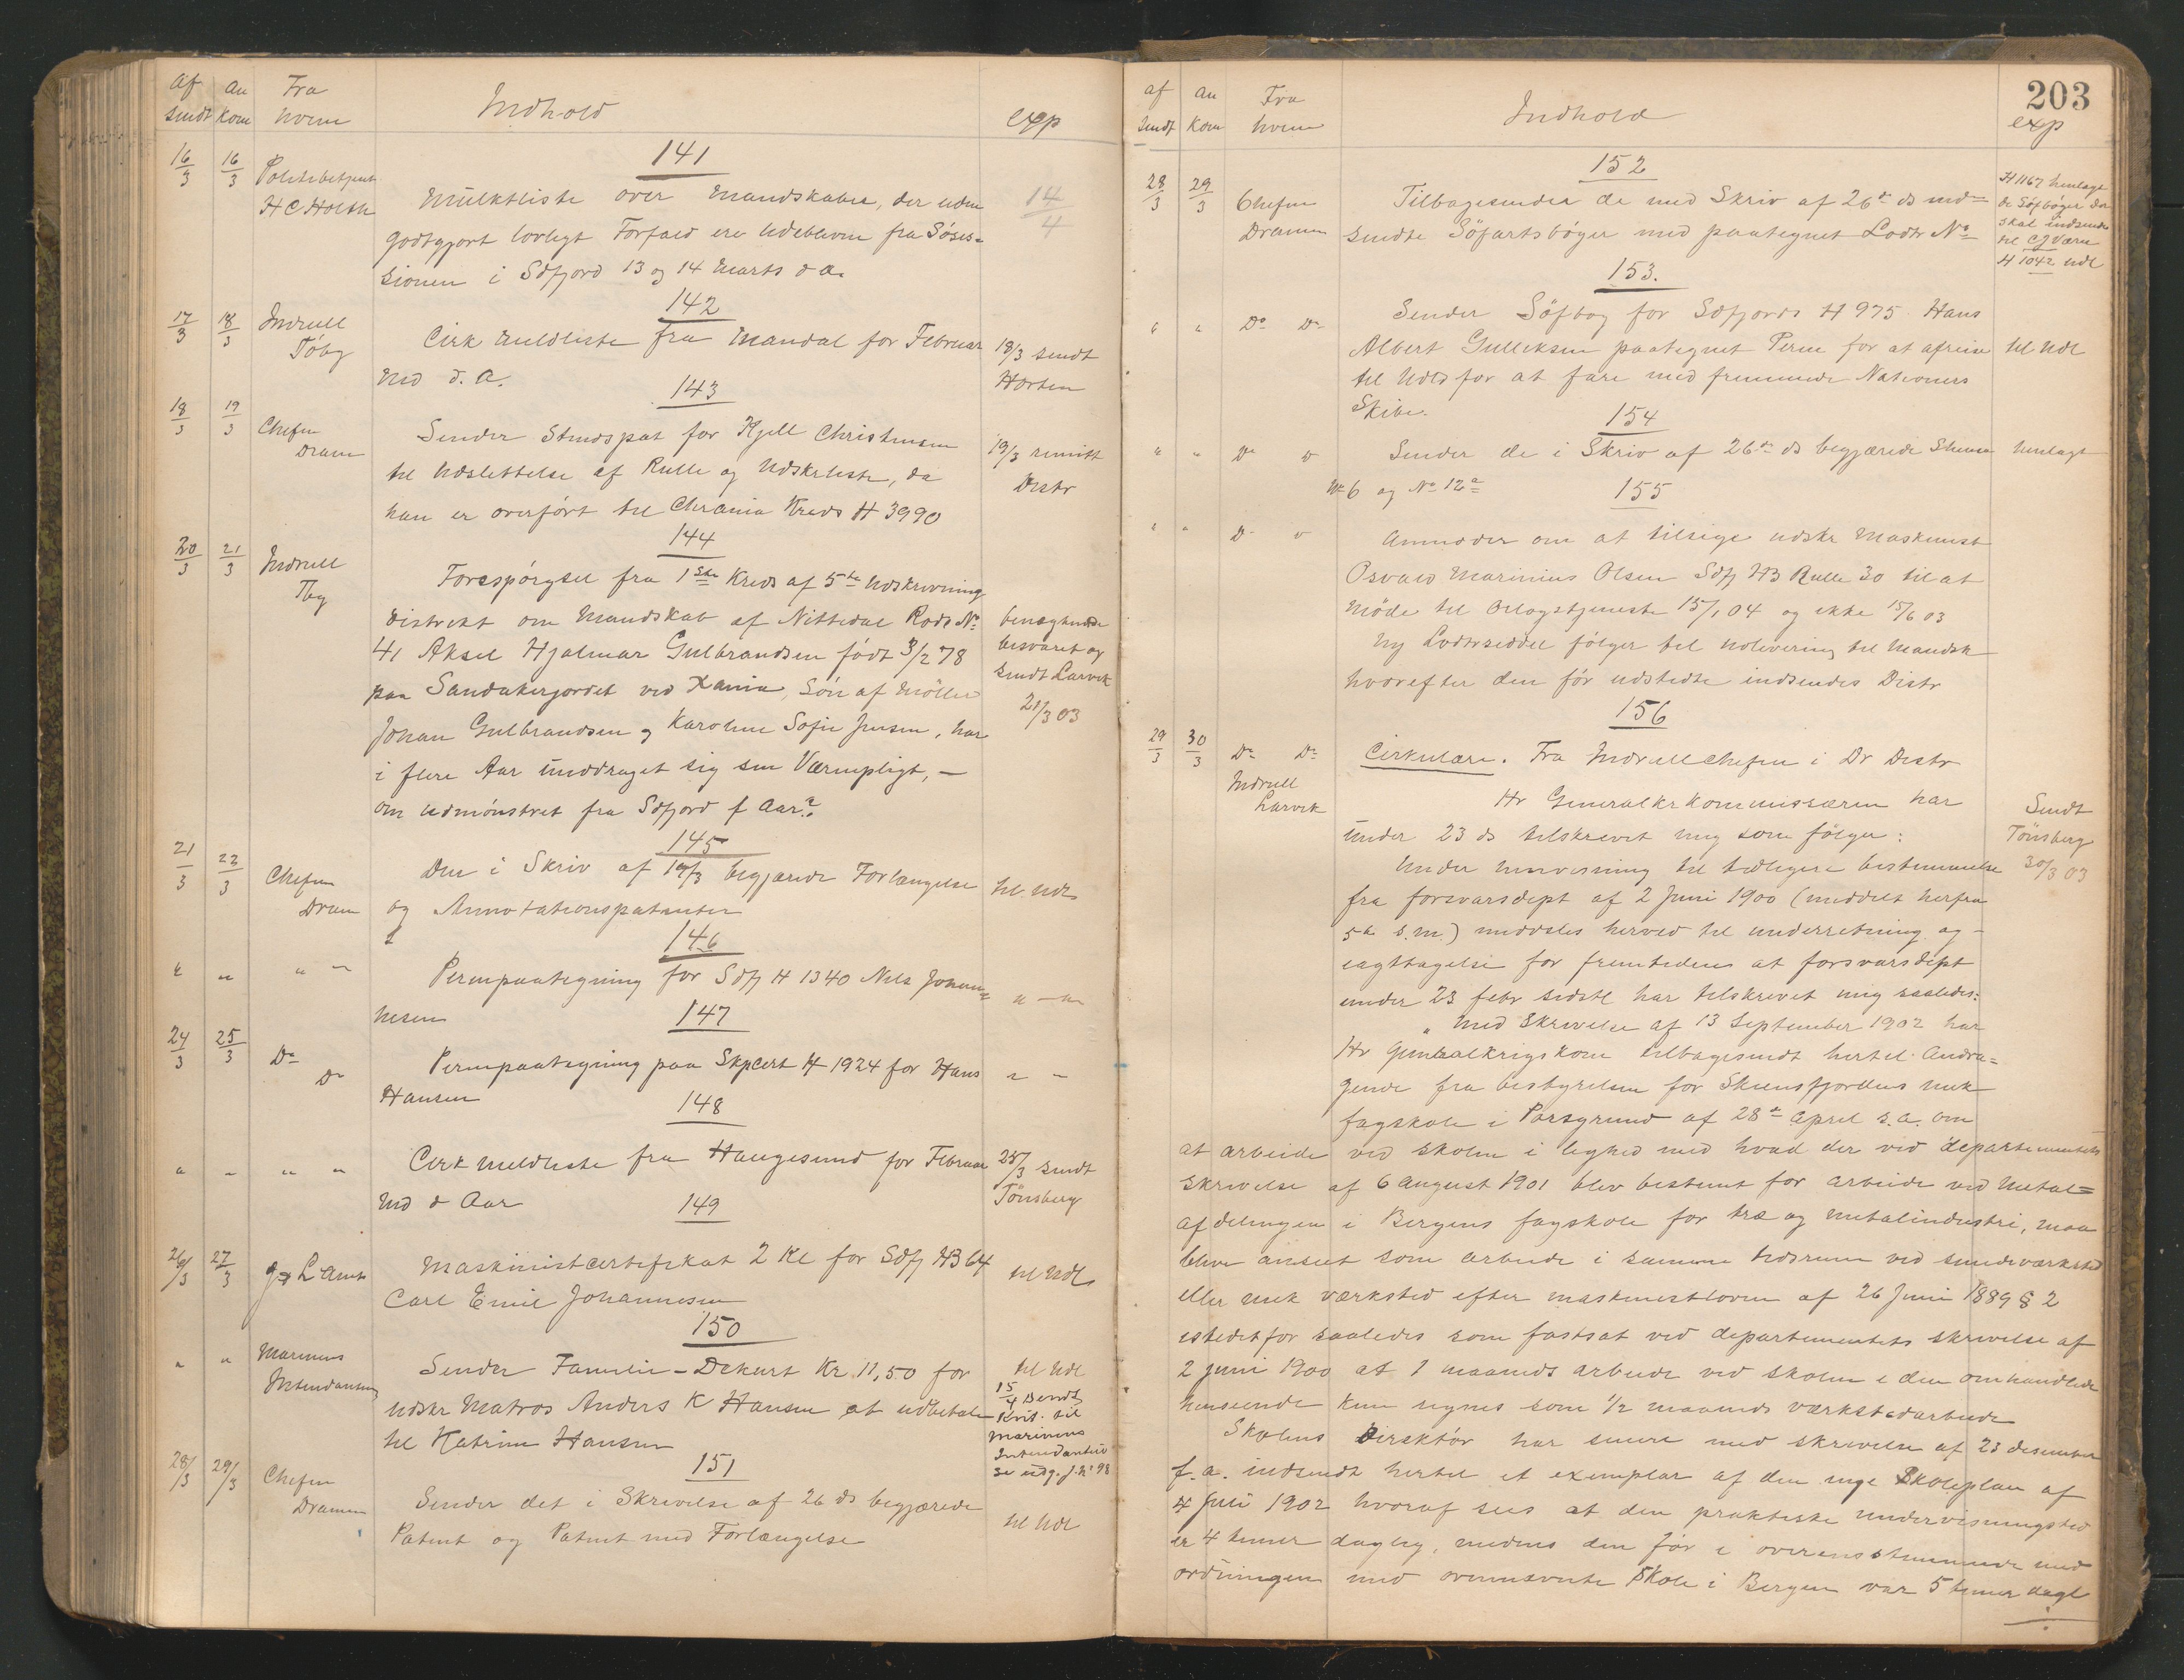 Af sendt
An kom
Fra hvem
Indhold
exp
141
16/3 16/3 Politibetjent H C Holth
Mulktliste over Mandskaber, der uden
godtgjort lovligt Forfald ere udeblevne fra Søses=
sionen i Sdfjord 13 og 14 Marts d A.
14/4
142
17/3 18/3 Indrull Tbg
Cirk Meldliste fra Mandal for Februar
Md d. A.
18/3 sendt
Horten
143
18/3 19/3 Chefen Dram
Sender Stmdspat for Kjell Christensen
til Udslettelse af Rulle og Udskrliste, da
han er overført til Chrania Kreds H 3990
19/3 remitt
Distr
144
20/3 21/3 Indrull Tbg
Forespørgsel fra 1ste Kreds af 5te Udskrivning
distrikt om Mandskab af Nittedal Rode No
41 Aksel Hjalmar Gulbrandsen født 3/2 78
paa Sandakerjordet ved Xania, Søn af Møller
Johan Gulbrandsen og Karoline Sofie Jensen, har
i flere Aar unddraget sig sin Værnepligt, —
om udmønstret fra Sdfjord f Aar?
benægtende
besvaret og
sendt Larvik
21/3 03
145
21/3 22/3 Chefen Dram
Den i Skriv af 19/3 begjærede Forlængelse
og Annotationspatenter
til Udl
146
" " " "
Permpaategning for Sdfj H 1340 Nils Johan=
nesen
" — "
147
24/3 25/3 Do Do
Permpaategning paa Skpcert H 1924 for Hans
Hansen
" "
148
" " " "
Cirk meldliste fra Haugesund for Februar
Md d Aar
25/3 sendt
Tønsberg
149
26/3 27/3 J & L Amt
Maskinistcertifikat 2 Kl for Sdfj HB 64
Carl Emil Johannesen
til Udl
150
" " Marinens Intendantur
Sender Familie-Dekurt Kr 11,50 for
udskr Matros Anders K Hansen at udbetale
til Katrine Hansen
til Udl
15/4 Sendt
Kvit. til
Marinens
Intendantur
se udg. J. No 98
151
28/3 29/3 Chefen Drammen
Sender det i Skrivelse af 26 ds begjærede
Patent og Patent med Forlængelse
til Udl
203
af sendt
an kom
Fra hvem
Indhold
exp
152
28/3 29/3 Chefen Drammen
Tilbagesender de med Skriv af 26de ds ind=
sendte Søfartsbøger med paategnet Lodtr No
H 1167 henlagt
De Søfbøger der
skal indsendes
til CJ Værn
H 1042 udl
153.
" " Do Do
Sender Søfbog for Sdfjords H 975 Hans
Albert Gulliksen paategnet Perm for at afreise
til Udld for at fare med fremmede Nationers
Skibe.
til Udl
154
" " Do Do
Sender de i Skriv af 26de ds begjærede Skema
No 6 og No 12a
henlagt
155
" " Do
Anmoder om at tilsige udskr Maskinist
Osvald Marinius Olsen Sdfj HB Rulle 30 til at
møde til Orlogstjeneste 15/1 04 og ikke 15/6 03
Ny Lodtrseddel følger til udlevering til Mandsk
hvorefter den før udstedte indsendes Distr
156
29/3 30/3 Do Do
Indrull Larvik
Cirkulære. Fra Indrullchefen i Dr Distr
Hr Generalkrkommissæren har
under 23 ds tilskrevet mig som følger:
Under henvisning til tidligere bestemmelse
fra forsvarsdept af 2 Juni 1900 (meddelt herfra
5te s.m.) meddeles herved til underretning og
iagttagelse for fremtiden at forsvarsdept
under 23 febr sidstl har tilskrevet mig saaledes:
„ Med Skrivelse af 13 September 1902 har
Hr Generalkrigskom tilbagesendt hertil Andra=
gende fra bestyrelsen for Skiensfjordens mek
fagskole i Porsgrund af 28de April s.a. om
at arbeide ved skolen i lighed med hvad der ved departementets
skrivelse af 6 August 1901 blev bestemt for arbeide ved Metal=
afdelingen i Bergens fagskole for træ og metalindustri, maa
blive anseet som arbeide i samme tidsrum ved smedeværksted
eller mek værksted efter maskinistloven af 26 Juni 1889 § 2
istedetfor saaledes som fastsat ved departementets skrivelse af
2 juni 1900 at 1 maaneds arbeide ved skolen i den omhandlede
henseende kun regnes som 1/2 maaneds værkstedarbeide
Skolens Direktør har senere med skrivelse af 23 desember
f. a. indsendt hertil et exemplar af den nye Skoleplan af
4 Juli 1902 hvoraf sees at den praktiske undervisningstid
er 4 timer daglig, medens den før i overensstemmende med
ordningen med ovennævnte Skole i Bergen var 5 timer dagl
Sendt
Tønsberg
30/3 03